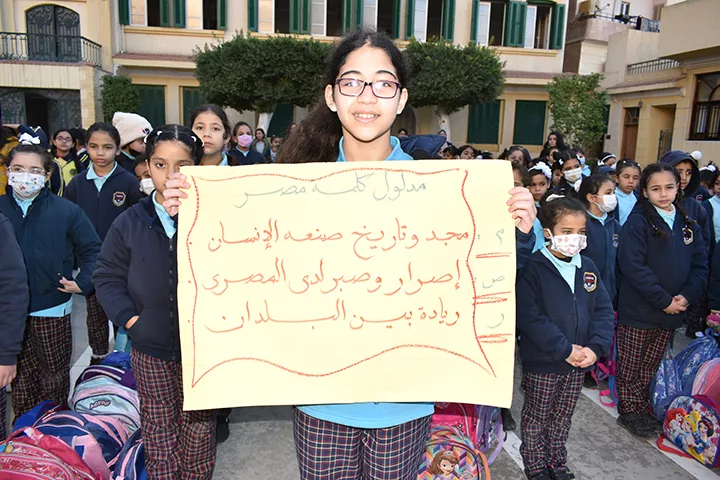 مدلول كلمة مصر
م : مجد وتاريخ صنعه الإنسان
ص : إصرار وصبر لدى المصرى
ر : ريادة بين البلدان